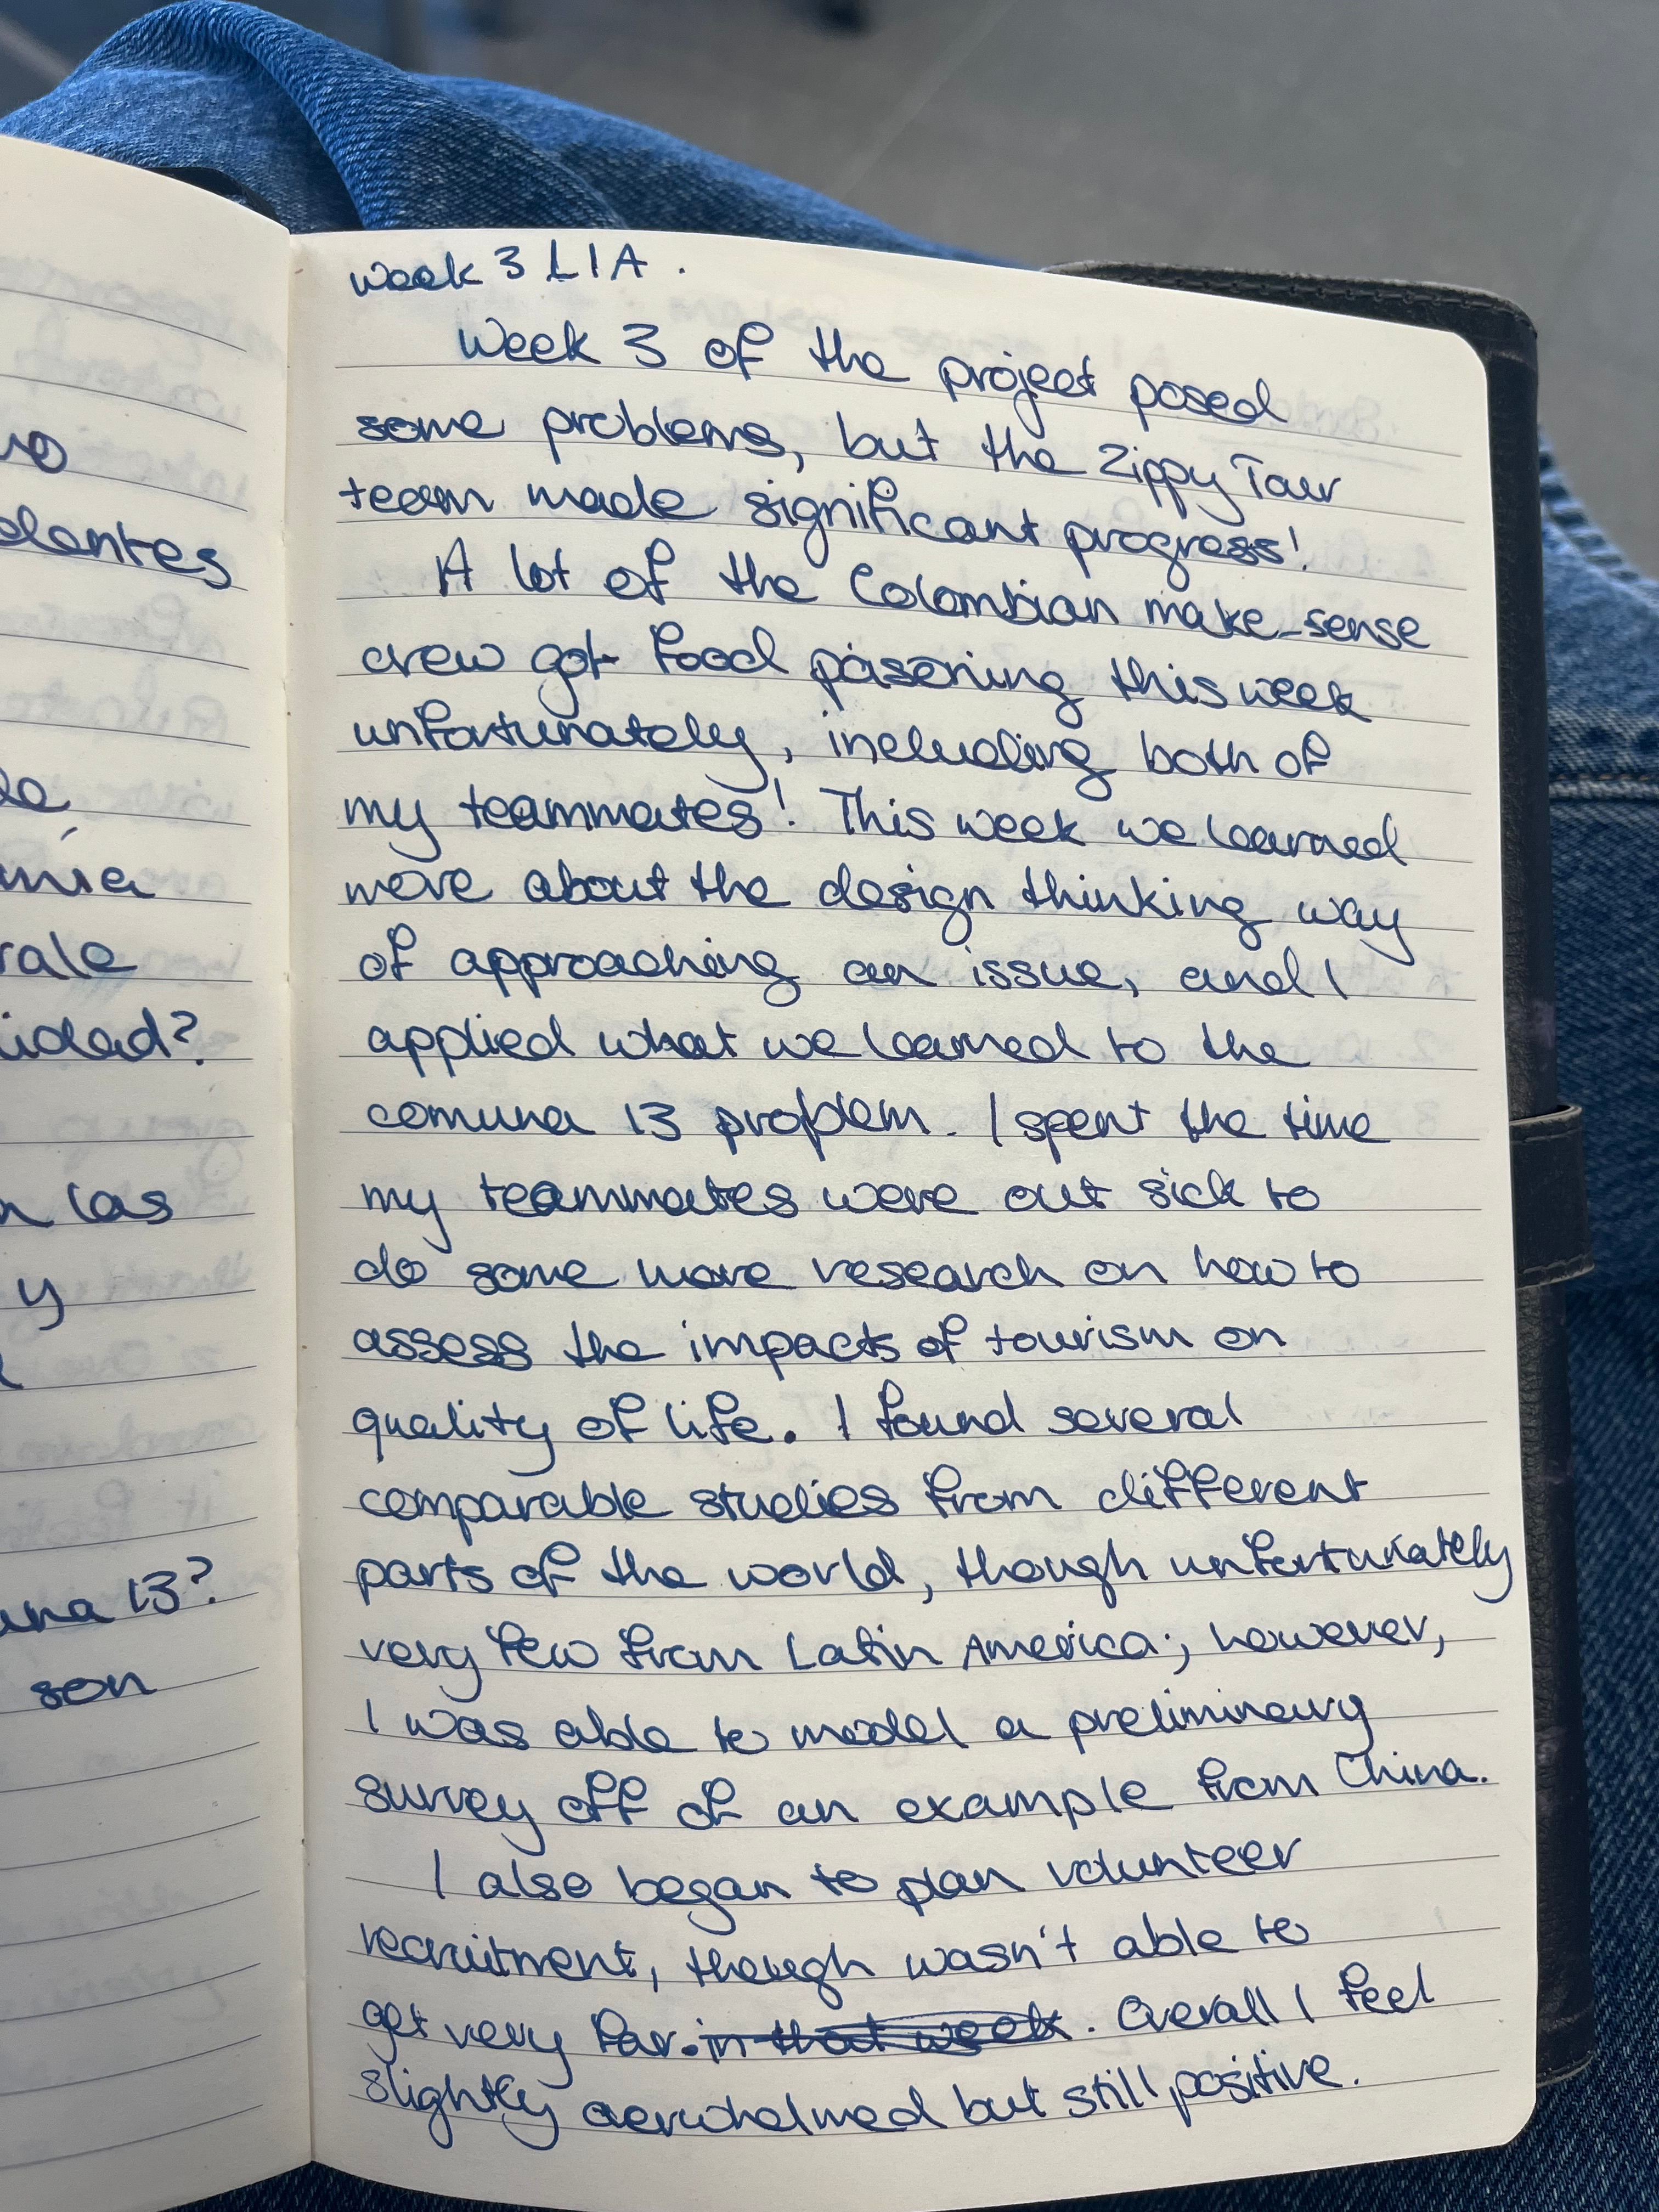 no
dentes
de
mía
rale
idad?
n las
y
una 13?
son
week 3 LIA.
Week 3 of the project posed
some problems, but the Zippy Tour
team made significant progress!
A lot of the Colombian make-sense
crew got food poisoning this week
unfortunately, including both of
my teammates! This week we learned
more about the design thinking way
of approaching an issue, and I
applied what we learned to the
comuna 13 problem. I spent the time
my teammates were out sick to
do some more research on how to
assess the impacts of tourism on
quality of life. I found several
comparable studies from different
parts of the world, though unfortunately
very few from Latin America; however,
I was able to model a preliminary
survey off of an example from China.
I also began to plan volunteer
recruitment, though wasn't able to
get very far. in that week. Overall I feel
slightly overwhelmed but still positive.